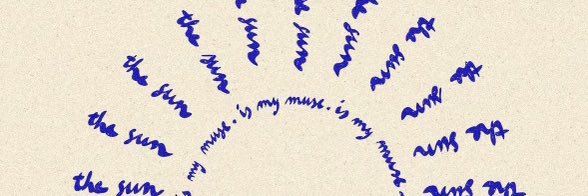 the sun
the sun
the sun
the sun
sun
sun
sun
the sun
the sun
the sun
the sun
my muse. is my muse. is my muse